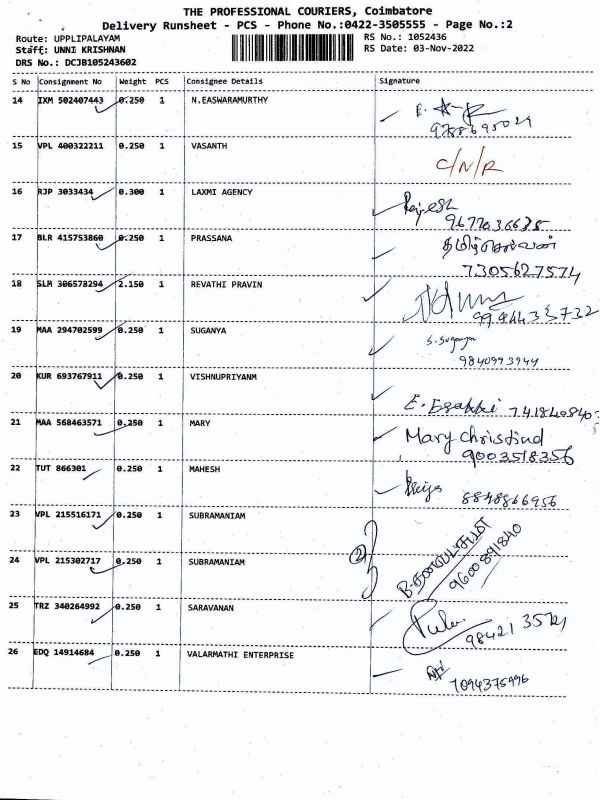 THE PROFESSIONAL COURIERS, Coimbatore
Delivery Runsheet - PCS - Phone No.:0422-3505555 - Page No.:2
Route: UPPLIPALAYAM RS No.: 1052436
Staff: UNNI KRISHNAN RS Date: 03-Nov-2022
DRS No.: DCJB105243602
S No Consignment No Weight PCS Consignee Details Signature
14 IXM 502407443 0.250 1 N.EASWARAMURTHY
15 VPL 400322211 0.250 1 VASANTH C/N/R
16 RJP 3033434 0.300 1 LAXMI AGENCY Rajesh
17 BLR 415753860 0.250 1 PRASSANA தமிழ்செல்வன்
7305627574
18 SLM 306578294 2.150 1 REVATHI PRAVIN
19 MAA 294702599 0.250 1 SUGANYA S. Suganya
9840993944
20 KUR 693767911 0.250 1 VISHNUPRIYANM
21 MAA 568463571 0.250 1 MARY Mary Christind
9003518356
22 TUT 866301 0.250 1 MAHESH Priya 8848866956
23 VPL 215516171 0.250 1 SUBRAMANIAM
24 VPL 215302717 0.250 1 SUBRAMANIAM 2
9600891840
25 TRZ 340264992 0.250 1 SARAVANAN
98421 35721
26 EDQ 14914684 0.250 1 VALARMATHI ENTERPRISE
7094375996